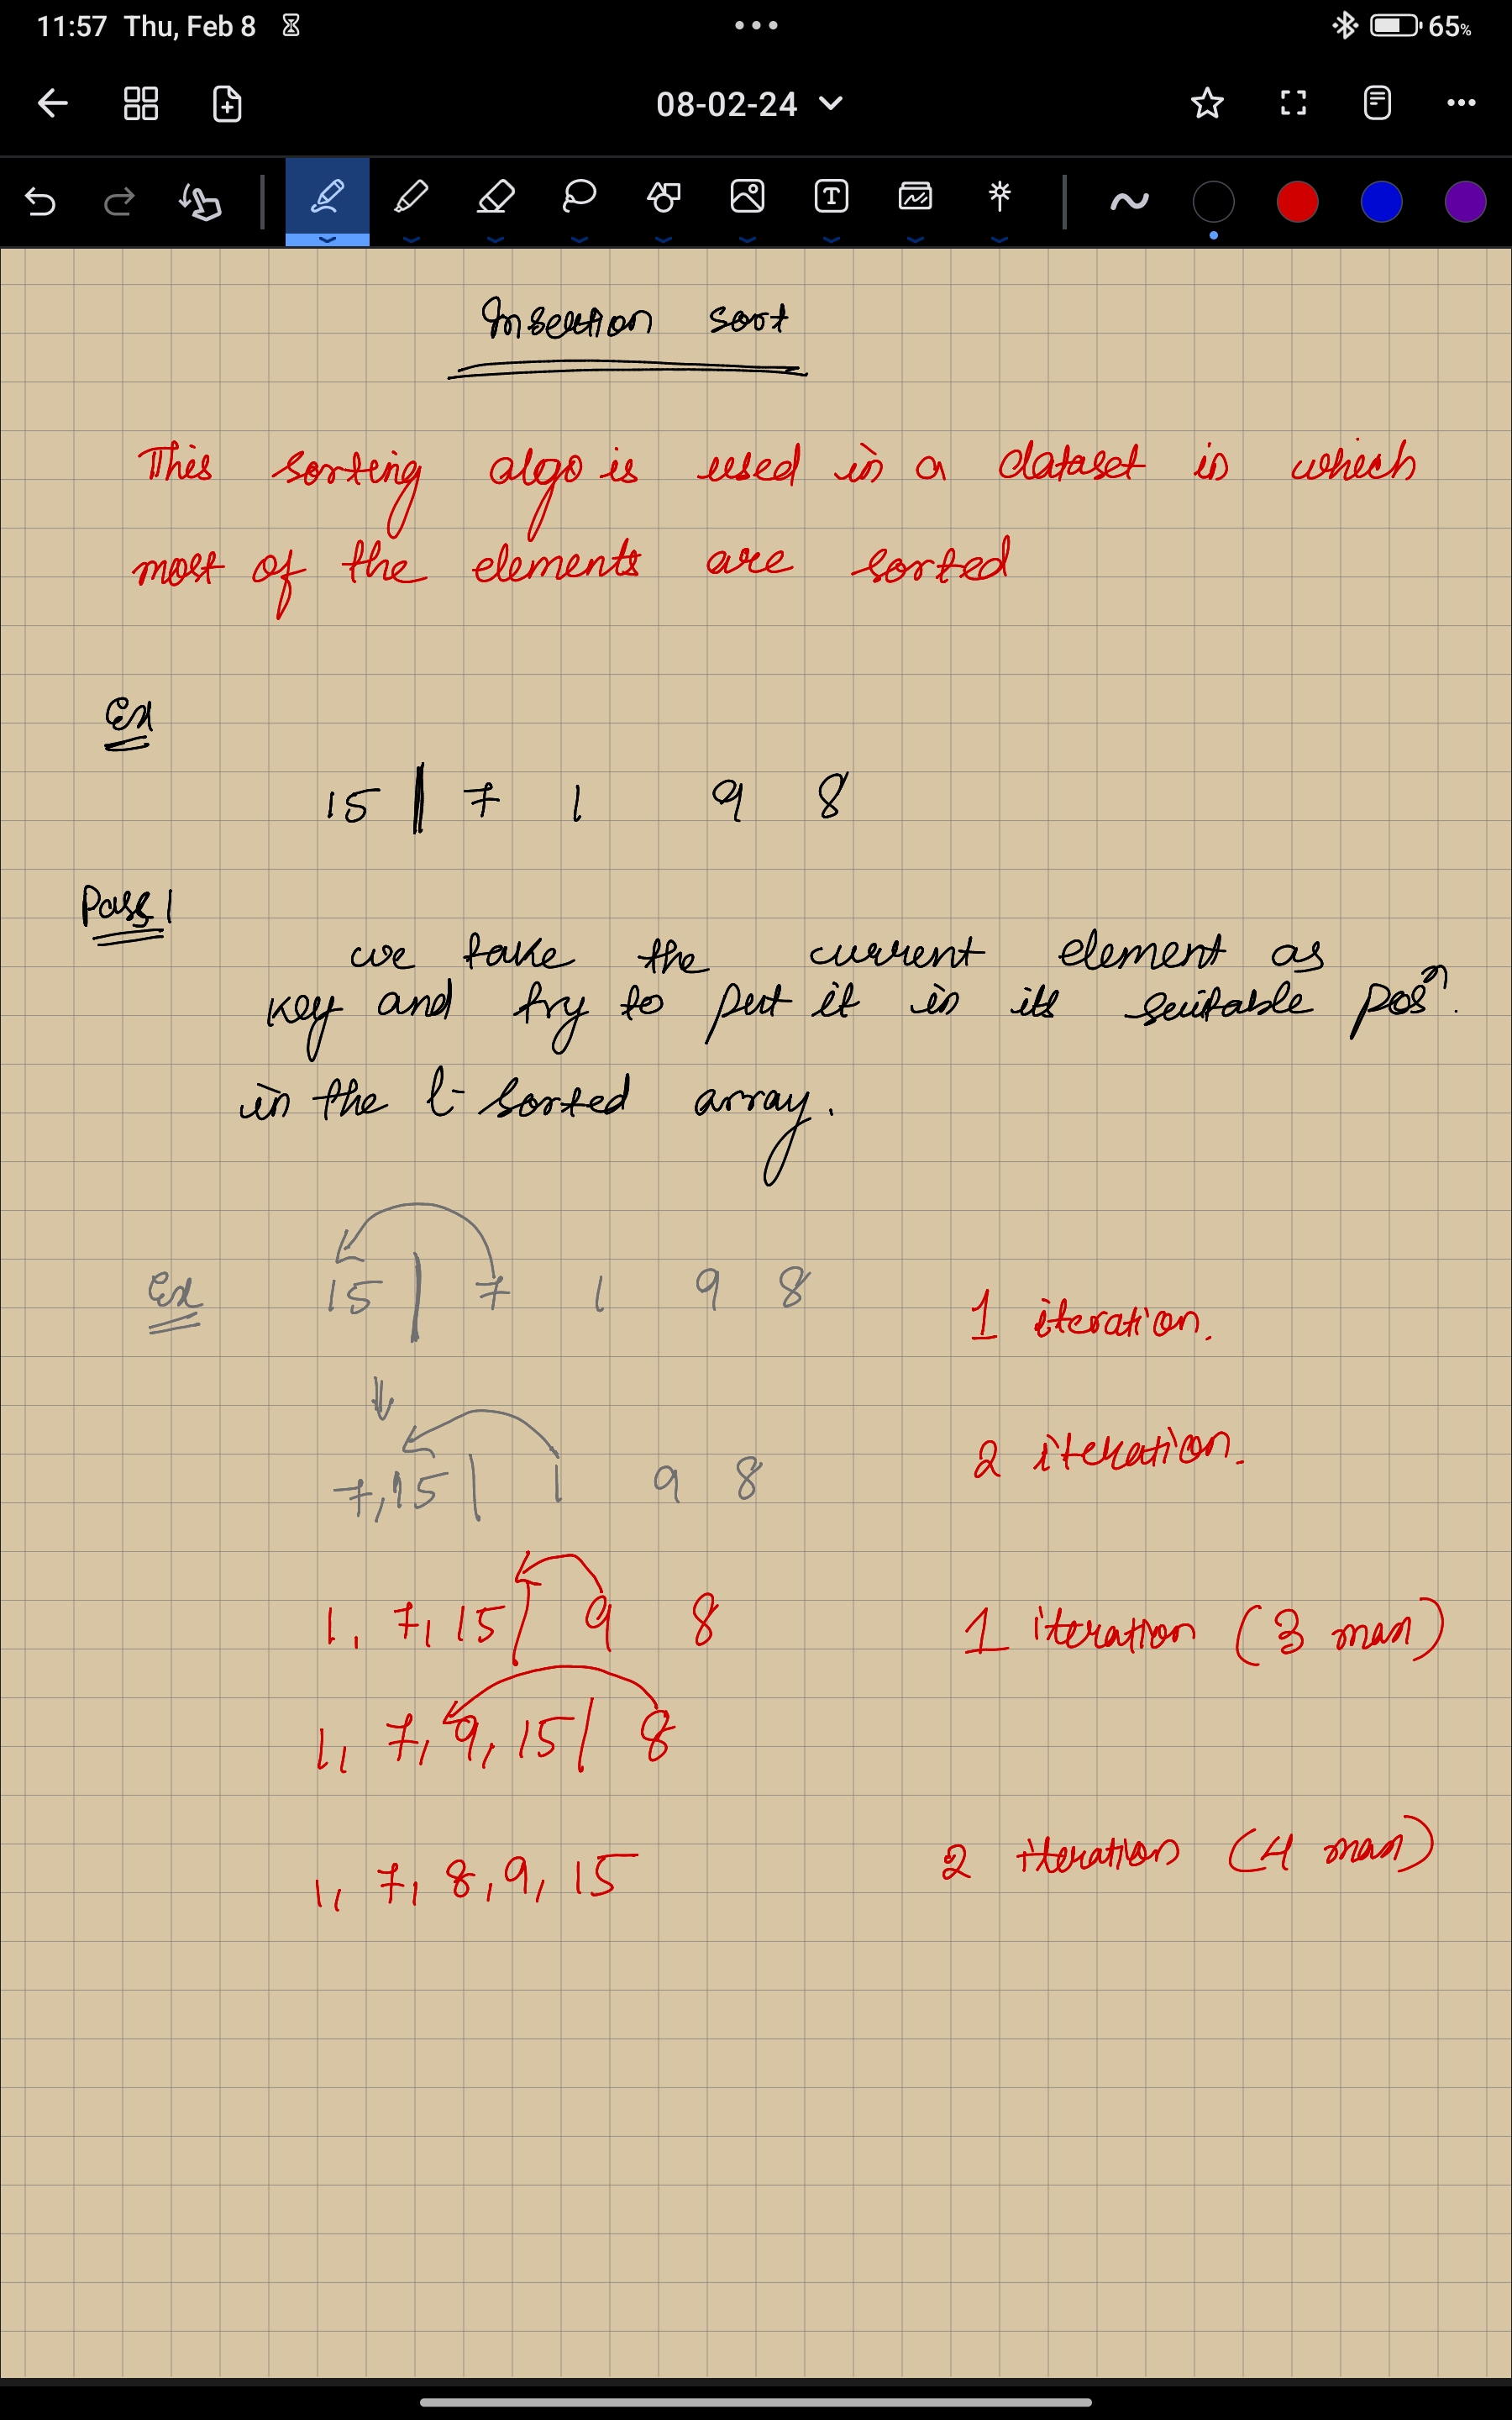 11:57 Thu, Feb 8
65%
08-02-24
Insertion sort
This sorting algo is used in a dataset in which
most of the elements are sorted
Ex
15 | 7 1 9 8
Pass 1
we take the current element as
key and try to put it in its suitable posⁿ.
in the l- sorted array.
Ex 15 | 7 1 9 8 1 iteration.
7,15 | 1 9 8 2 iteration.
1, 7, 15 | 9 8 1 iteration (3 max)
1, 7, 9, 15 | 8
1, 7, 8, 9, 15 2 iteration (4 max)